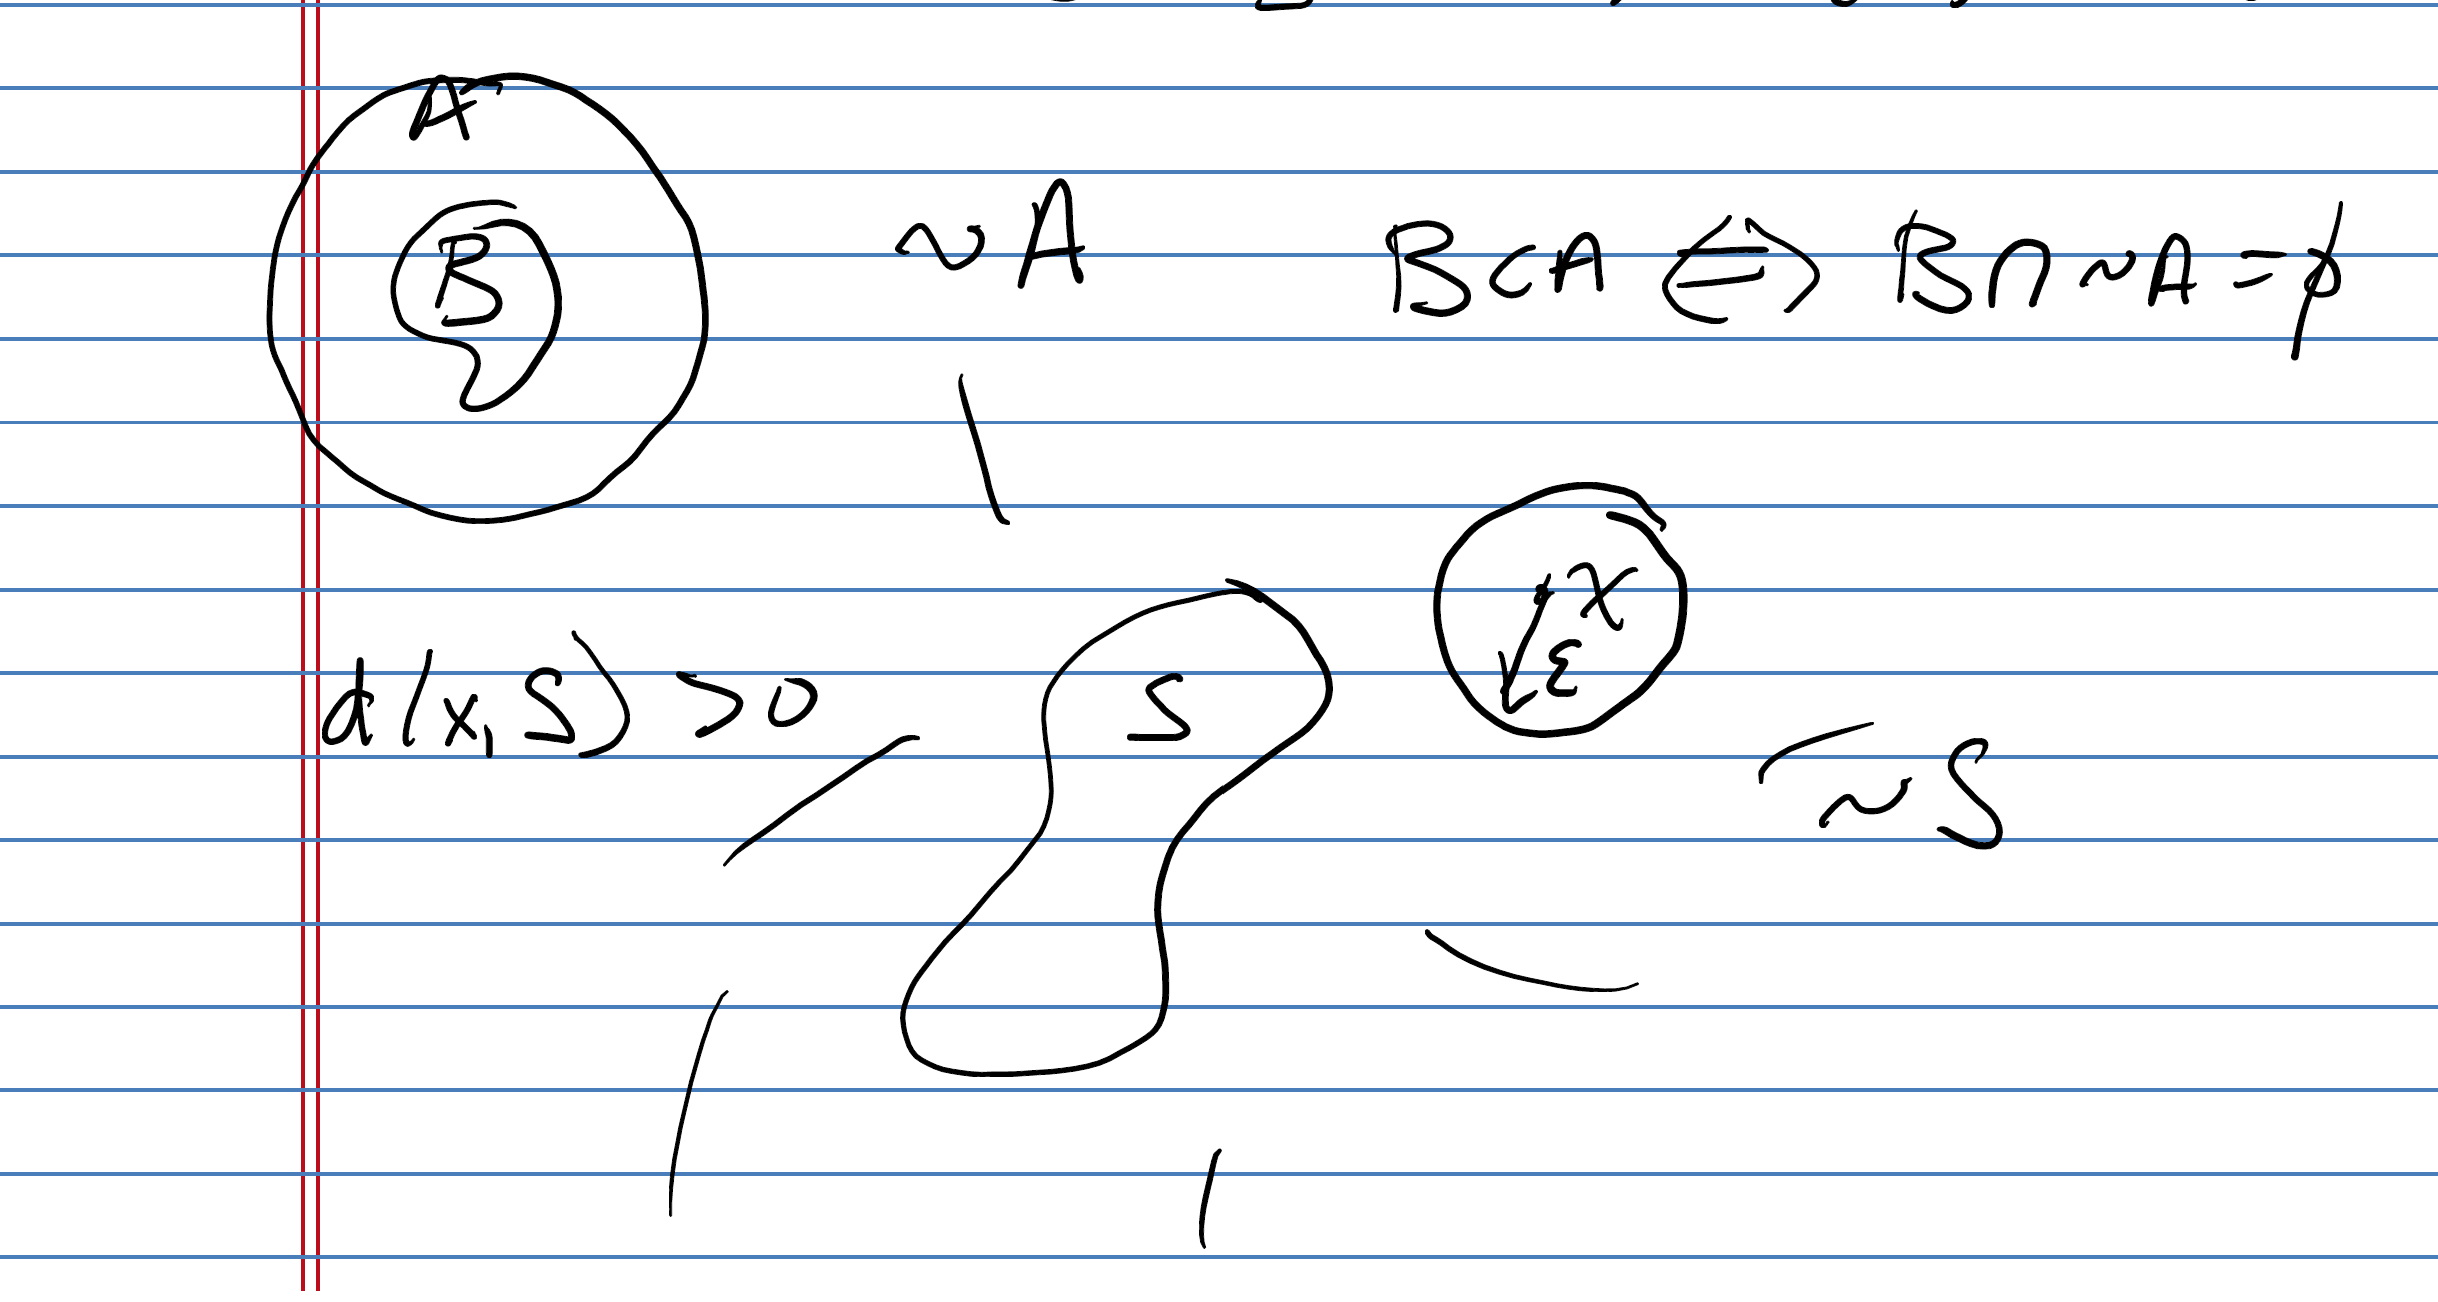 A
B
~A
B⊂A ⇔ B∩~A=ϕ
x
ε
d(x,S)>0
S
~S